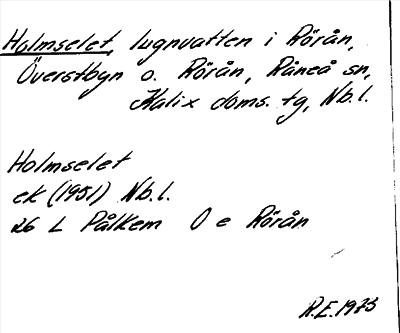 Holmselet, lugnvatten i Rörån,
Överstbyn o. Rörån, Råneå sn,
Kalix doms. tg, Nb. l.
Holmselet
ek (1951) Nb. l.
26 L Pålkem O e Rörån
R.E. 1973